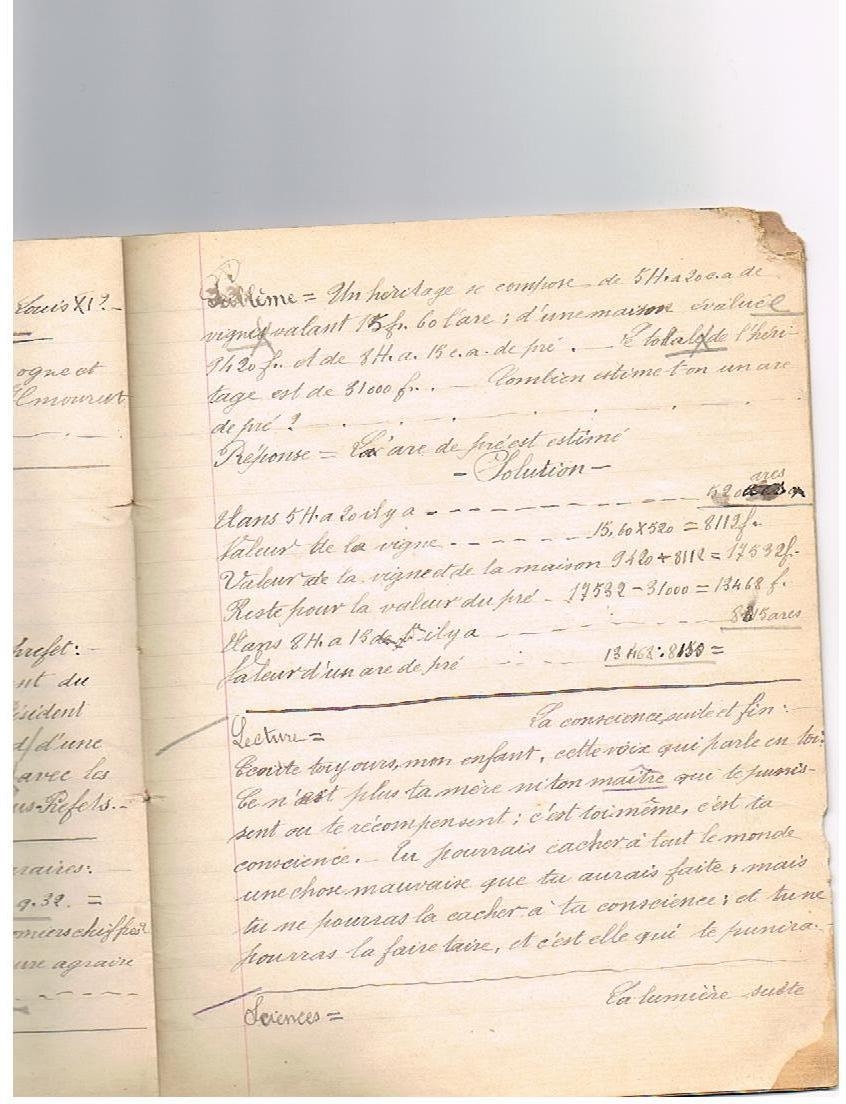 Louis XI ? -
ogne et
Amouret
préfet : -
nt du
ésident
d'une
avec les
us-Préfets. -
raires :
9.32. =
omiers chiffres
ure agraire
Problème = Un héritage se compose de 5 H. a 20 c. a de
vignes valant 15 fr. 60 l'are ; d'une maison évaluée
9420 f. et de 8 H. a. 15 c. a. de pré. - Le total de l'héri-
tage est de 31000 fr. - Combien estime t-on un are
de pré ?
Réponse = L'are de pré est estimé
- Solution -
Dans 5 H. a 20 il y a - - - - - - - 520 ares
Valeur de la vigne - - - - - 15,60 X 520 = 8112 f.
Valeur de la vigne et de la maison 9420 + 8112 = 17532 f.
Reste pour la valeur du pré - 17532 - 31000 = 13468 f.
Dans 8 H. a 15 il y a - - - - - 815 ares
Valeur d'un are de pré - - - 13468 : 8150 =
Lecture = La conscience, suite et fin : -
Ecoute toujours, mon enfant, cette voix qui parle en toi.
Ce n'est plus ta mère ni ton maître qui te punis-
sent ou te récompensent ; c'est toi même, c'est ta
conscience. - Tu pourrais cacher à tout le monde
une chose mauvaise que tu aurais faite ; mais
tu ne pourras la cacher à ta conscience ; et tu ne
pourras la faire taire, et c'est elle qui te punira. -
Sciences = La lumière suite